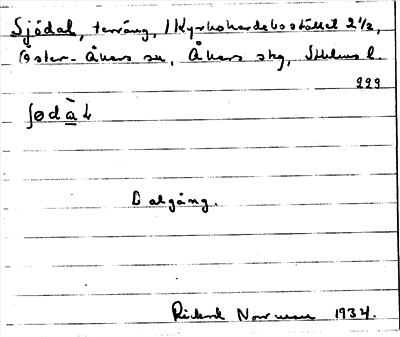 Sjödal, terräng, 1 Kyrkoherdebostället 2 1/2,
Öster-Åkers sn, Åkers skg, Sthlms l.
999
ʃødàl
Dalgång.
Rickard Norrman 1934.